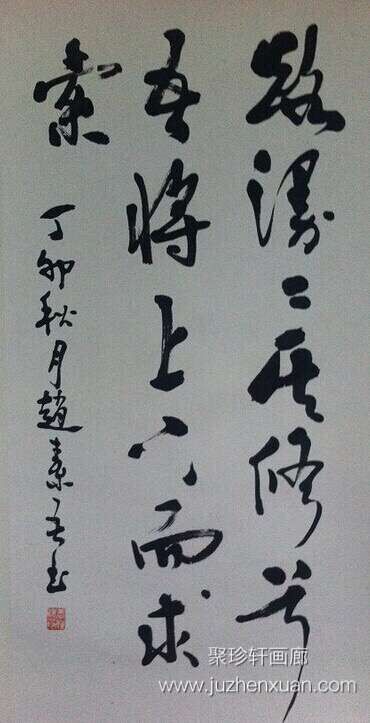 路漫々其修兮
吾將上下而求
索
丁卯秋月趙素书
聚珍轩画廊
www.juzhenxuan.com